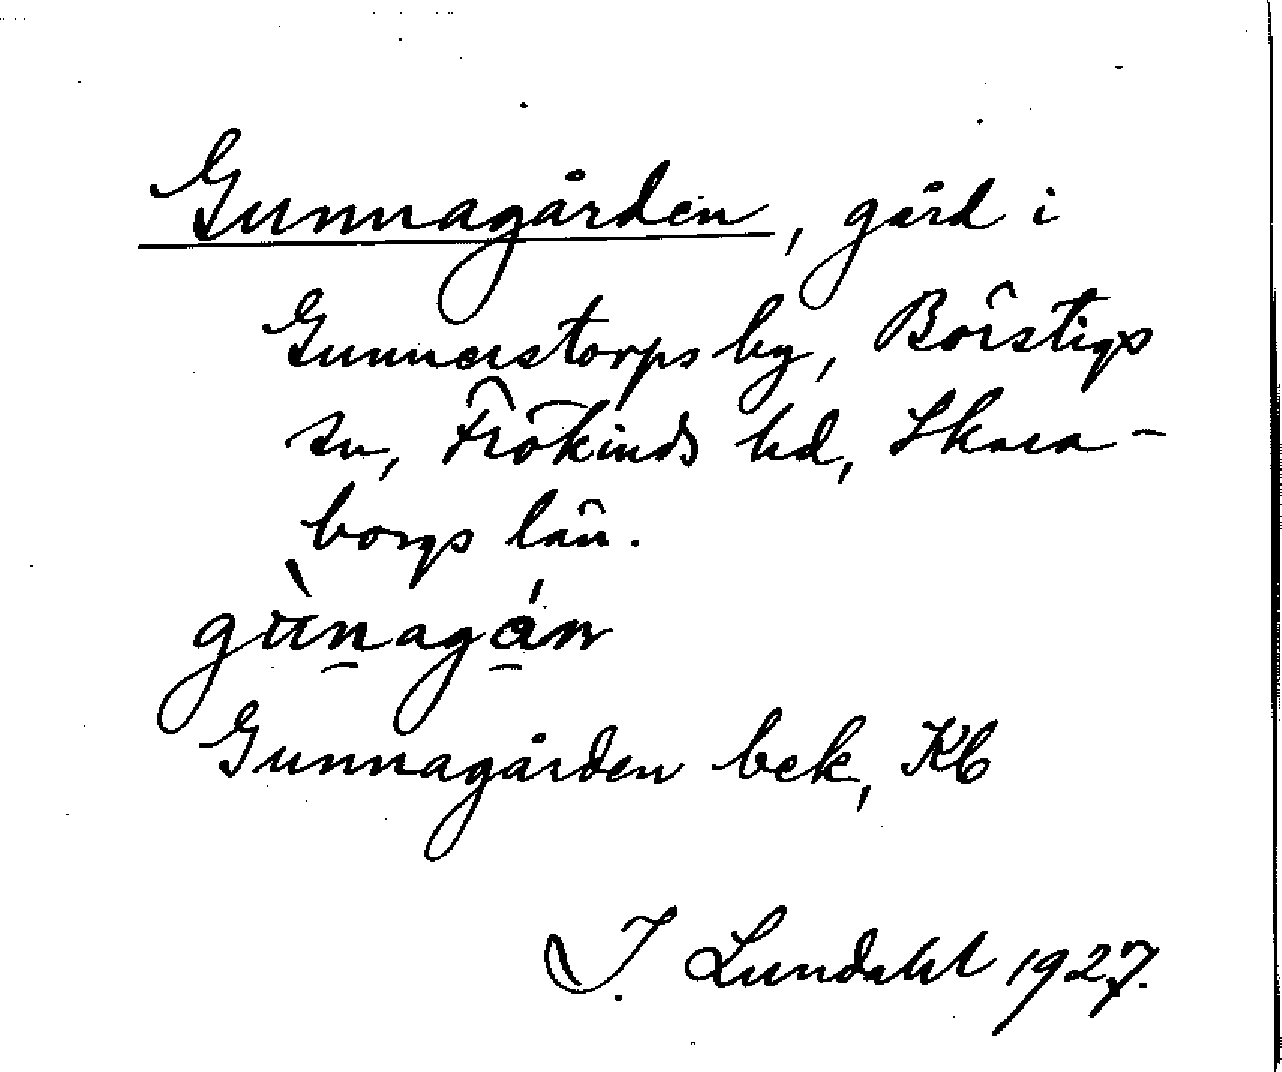 Gunnagården, gård i
Gunnarstorps by, Börstigs
sn, Frökinds hd, Skara-
borgs län.
Gunnagården bek, Kb
I. Lundahl 1927.